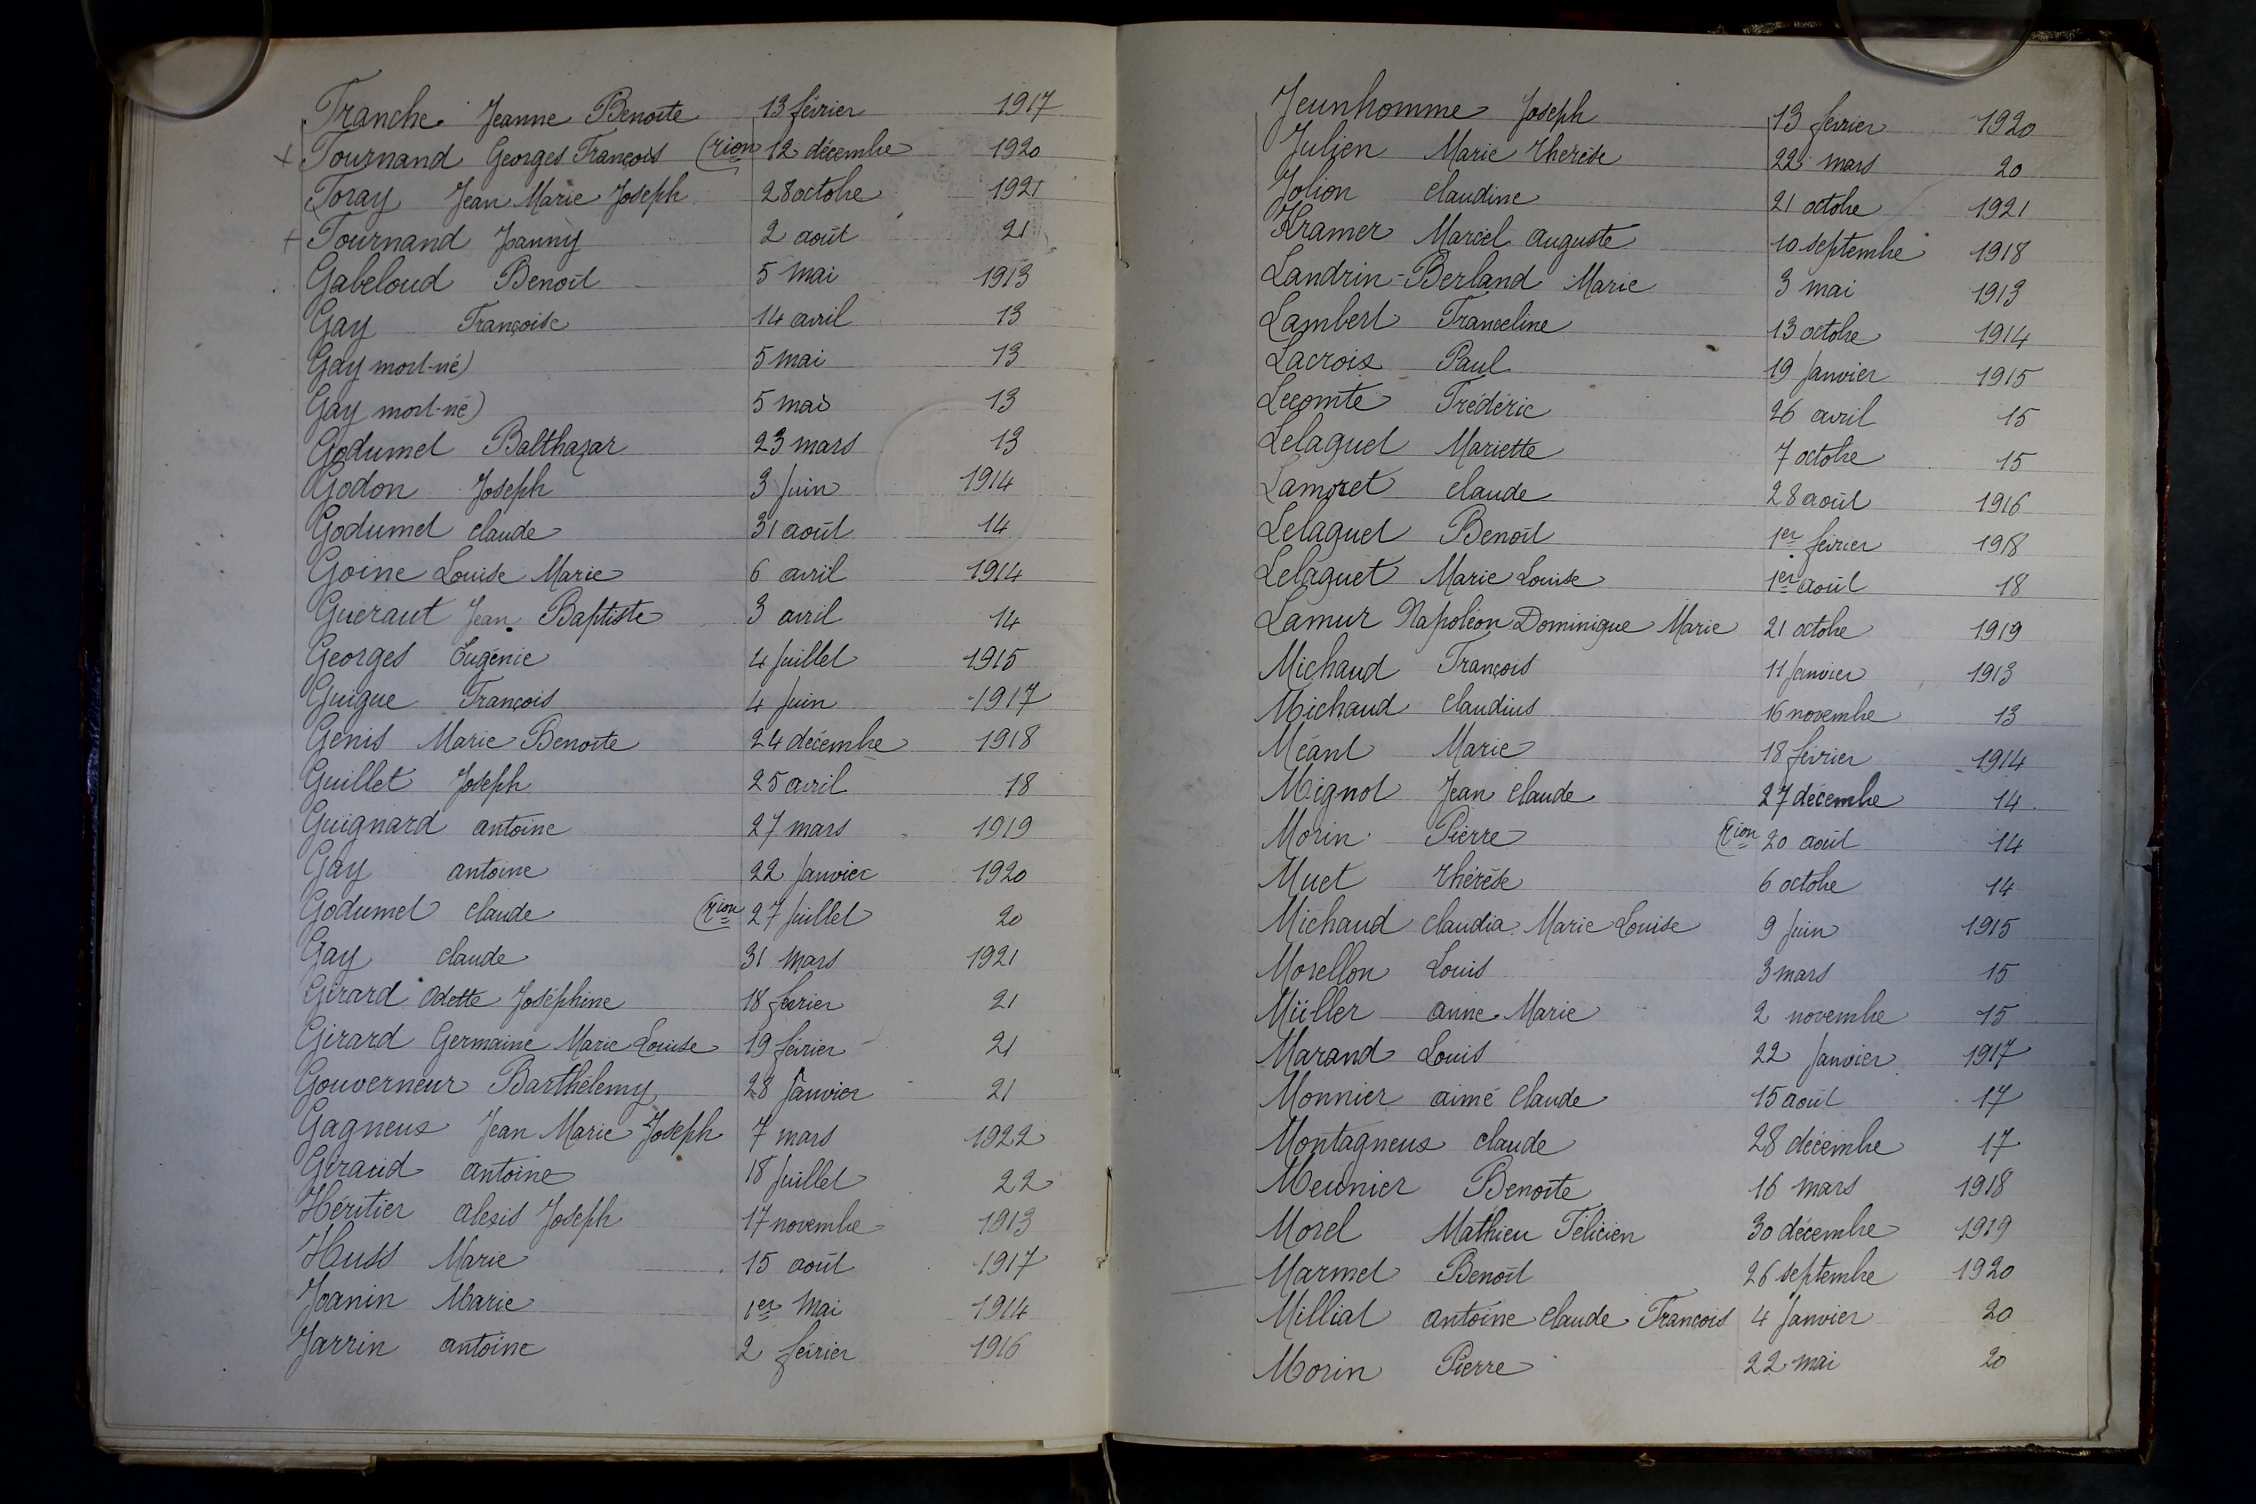 Franche Jeanne Benoîte 13 février 1917
+ Fournand Georges François (Ton 12 décembre 1920
Foray Jean Marie Joseph 28 octobre 1921
+ Fournand Joanny 2 août 21
Gabeloud Benoît 5 mai 1913
Gay Françoise 14 avril 13
Gay mort-né) 5 mai 13
Gay mort-né) 5 mai 13
Godumet Balthazar 23 mars 13
Godon Joseph 3 Juin 1914
Godumet claude 31 août 14
Goine Louise Marie 6 avril 1914
Gueraut Jean Baptiste 3 avril 14
Georges Eugénie 4 Juillet 1915
Guigue François 4 Juin 1917
Genis Marie Benoîte 24 décembre 1918
Guillet Joseph 25 avril 18
Guignard antoine 27 mars 1919
Gay antoine 22 Janvier 1920
Godumet claude (Ton 27 Juillet 20
Gay claude 31 mars 1921
Girard Odette Joséphine 18 février 21
Girard Germaine Marie Louise 19 février 21
Gouverneur Barthélemy 28 Janvier 21
Gagneux Jean Marie Joseph 7 mars 1922
Giraud antoine 18 Juillet 22
Héritier alexis Joseph 17 novembre 1913
Huss Marie 15 août 1917
Joanin Marie 1er mai 1914
Jarrin antoine 2 février 1916
Jeunhomme Joseph 13 février 1920
Julien Marie Thérèse 22 mars 20
Jolion claudine 21 octobre 1921
Kramer Marcel auguste 10 septembre 1918
Landrin-Berland Marie 3 mai 1913
Lambert Franceline 13 octobre 1914
Lacroix Paul 19 Janvier 1915
Lecomte Frédéric 26 avril 15
Lelaguet Mariette 7 octobre 15
Lamoret claude 28 août 1916
Lelaguet Benoît 1er février 1918
Lelaguet Marie Louise 1er août 18
Lamur Napoléon Dominique Marie 21 octobre 1919
Michaud François 11 Janvier 1913
Michaud claudius 16 novembre 13
Méant Marie 18 février 1914
Mignot Jean claude 27 décembre 14
Morin Pierre (Ton 20 août 14
Muet Thérèse 6 octobre 14
Michaud claudia Marie Louise 9 Juin 1915
Morellon Louis 3 mars 15
Müller anne Marie 2 novembre 15
Marand Louis 22 Janvier 1917
Monnier aimé claude 15 août 17
Montagneux claude 28 décembre 17
Meunier Benoîte 16 mars 1918
Morel Mathieu Félicien 30 décembre 1919
Marmet Benoît 26 septembre 1920
Milliat antoine claude François 4 Janvier 20
Morin Pierre 22 mai 20